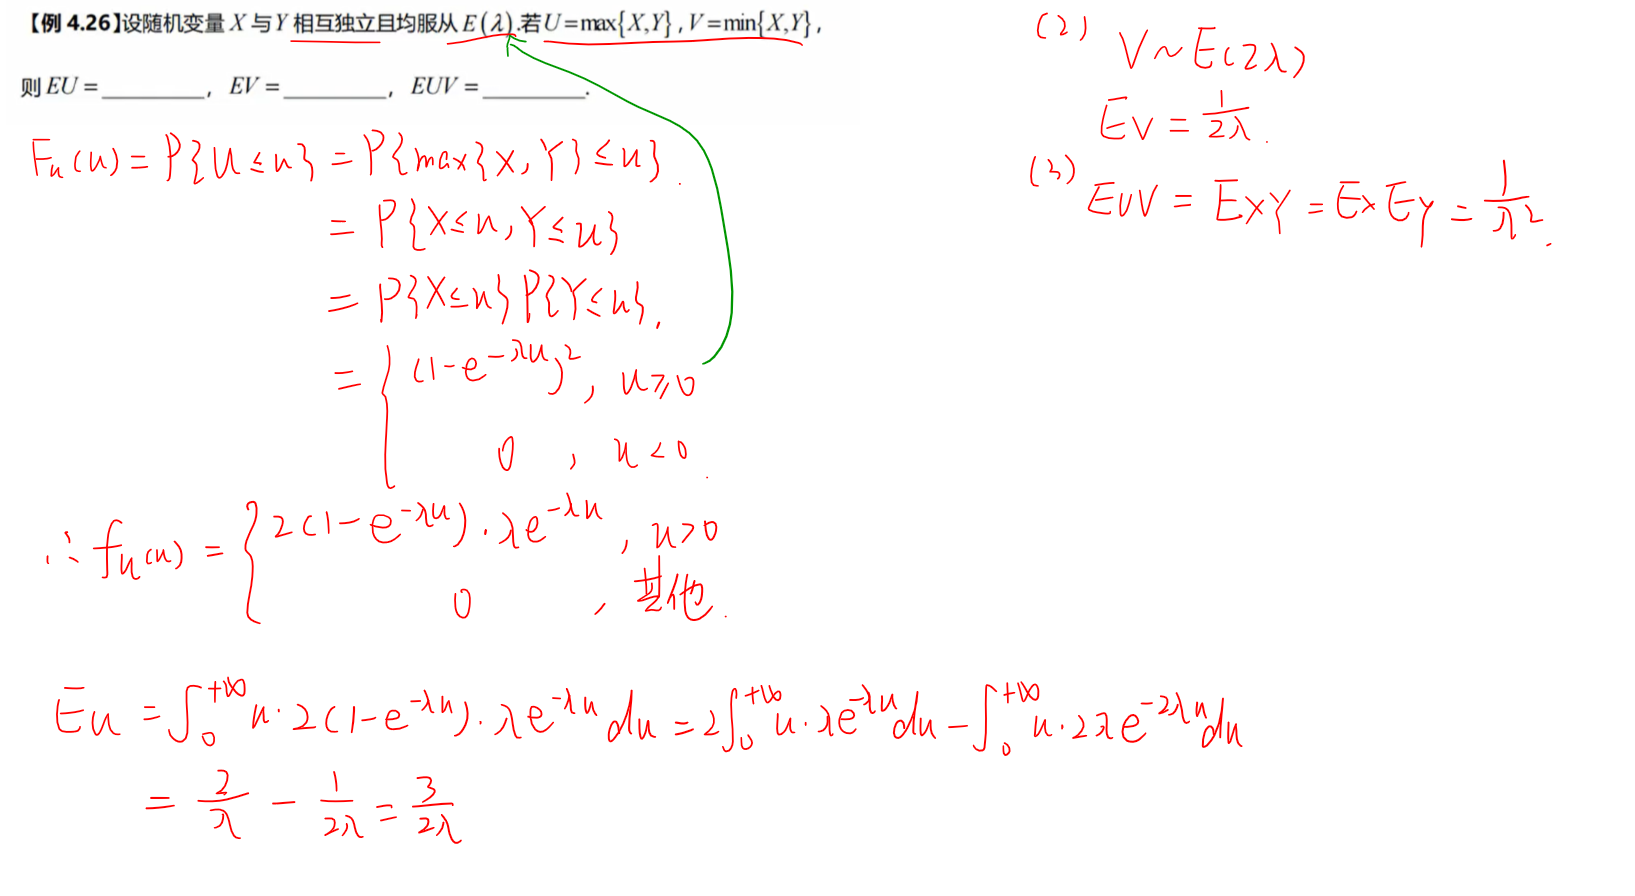 【例 4.26】设随机变量 X 与 Y 相互独立且均服从 E(λ).若U=max{X,Y},V=min{X,Y},
则EU=________, EV=________, EUV=________.
Fu(u) = P{U≤u} = P{max{X,Y}≤u}.
= P{X≤u,Y≤u}
= P{X≤u}P{Y≤u}.
= { (1-e^{-λu})^2, u≥0
0, u<0.
∴ fu(u) = { 2(1-e^{-λu})·λe^{-λu}, u>0
0, 其他.
Eu = ∫_0^{+∞} u·2(1-e^{-λu})·λe^{-λu}du = 2∫_0^{+∞} u·λe^{-λu}du - ∫_0^{+∞} u·2λe^{-2λu}du
= 2/λ - 1/2λ = 3/2λ
(2) V~E(2λ)
EV = 1/2λ.
(3) EUV = EXY = EXEY = 1/λ^2.